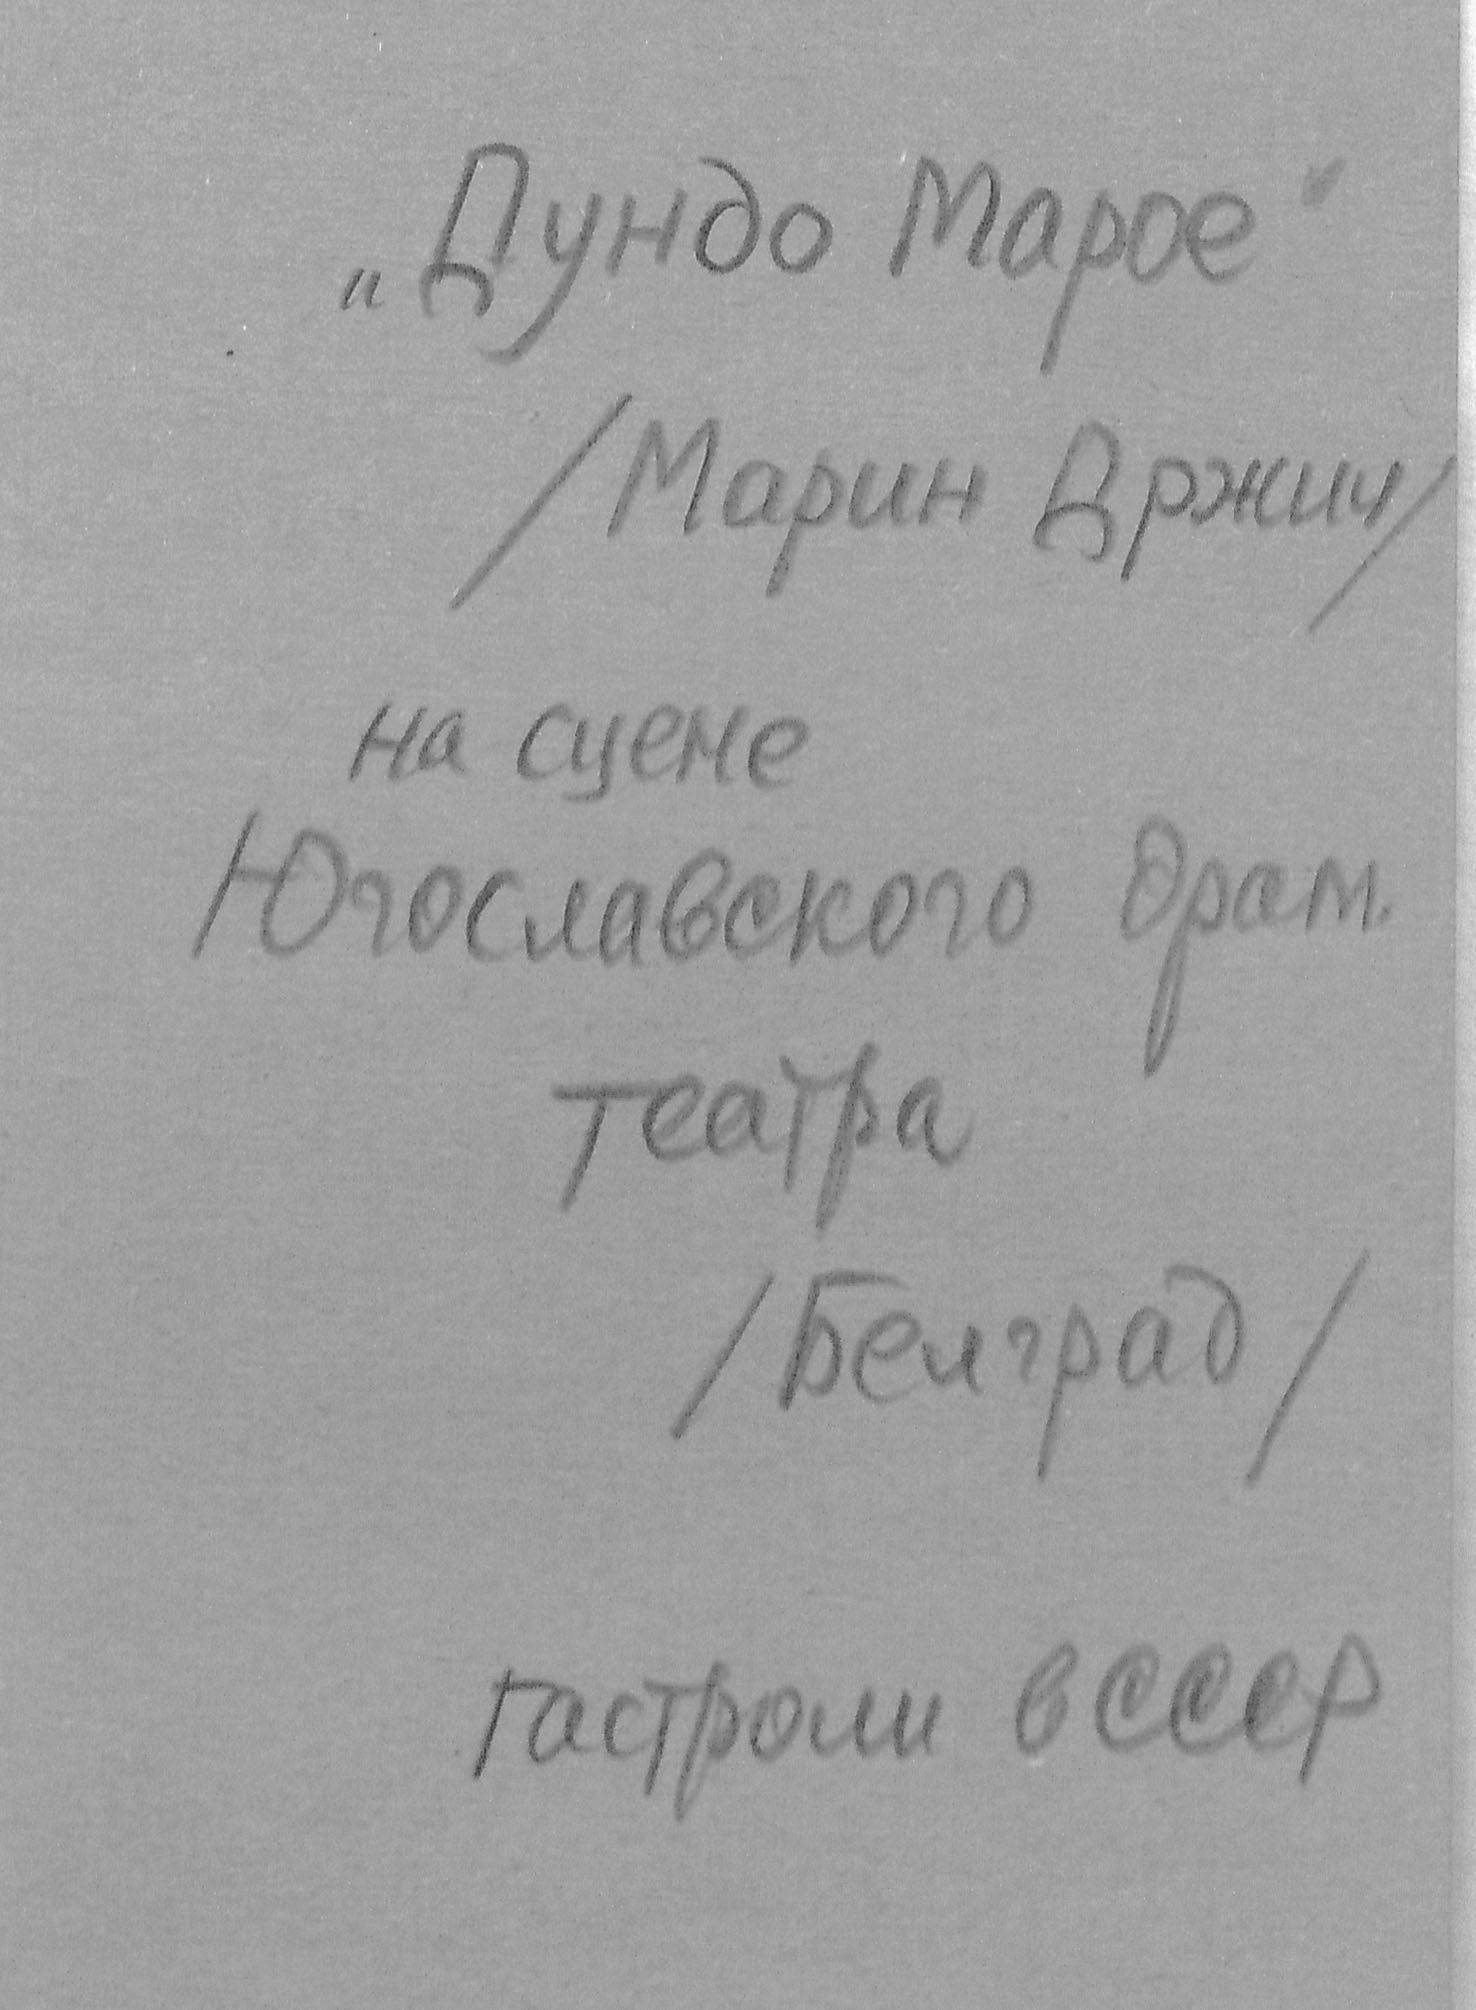 „Дундо Марое"
/Марин Држич/
на сцене
Югославского драм.
театра
/Белград/
гастроли в СССР